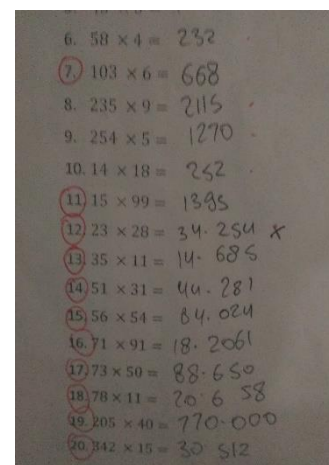 6. 58 × 4 = 232
7. 103 × 6 = 668
8. 235 × 9 = 2115
9. 254 × 5 = 1270
10. 14 × 18 = 252
11. 15 × 99 = 1395
12. 23 × 28 = 34.254 x
13. 35 × 11 = 14.685
14. 51 × 31 = 44.281
15. 56 × 54 = 84.024
16. 71 × 91 = 18.2061
17. 73 × 50 = 88.650
18. 78 × 11 = 20.6 58
19. 205 × 40 = 770.000
20. 342 × 15 = 30.512